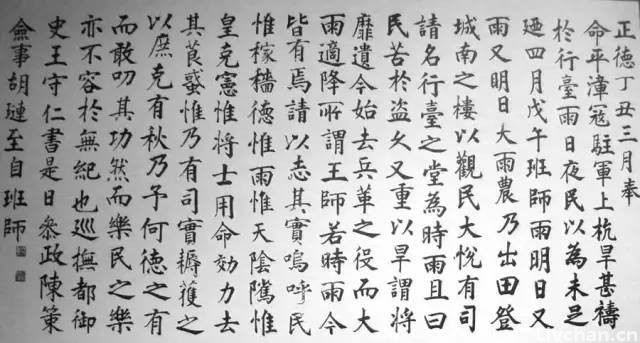 正德丁丑三月奉
命平漳寇駐軍上杭旱甚禱
於行臺雨日夜民以為未足
廼四月戊午班師雨明日又
雨又明日大雨農乃出田登
城南之樓以觀民大悅有司
請名行臺之堂為時雨且曰
民苦於盜久又重以旱謂將
靡遺今始去兵革之役而大
雨適降所謂王師若時雨今
皆有焉請以志其實嗚呼民
惟稼穡德惟雨惟天陰騭惟
皇克憲惟將士用命効力去
其莨惟乃有司實耨獲之
以庶克有秋乃予何德之有
而敢叨其功然而樂民之樂
亦不容於無紀也巡撫都御
史王守仁書是日叅政陳策
僉事胡璉至自班師